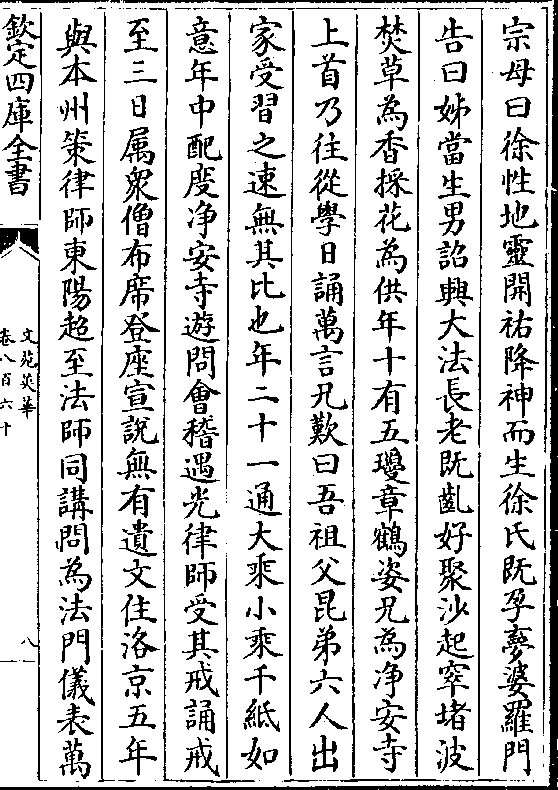 宗母曰徐性地靈開祐降神而生徐氏既孕夢婆羅門
告曰姊當生男詔興大法長老既齓好聚沙起窣堵波
焚草為香採花為供年十有五瓊章鶴姿兄為净安寺
上首乃往從學日誦萬言兄歎曰吾祖父昆弟六人出
家受習之速無其比也年二十一通大乘小乘千紙如
意年中配度净安寺遊問會稽遇光律師受其戒誦戒
至三日属衆僧布席登座宣說無有遺文住洛京五年
與本州策律師東陽超至法師同講問為法門儀表萬
欽定四庫全書
文苑英華
卷八百六十
八